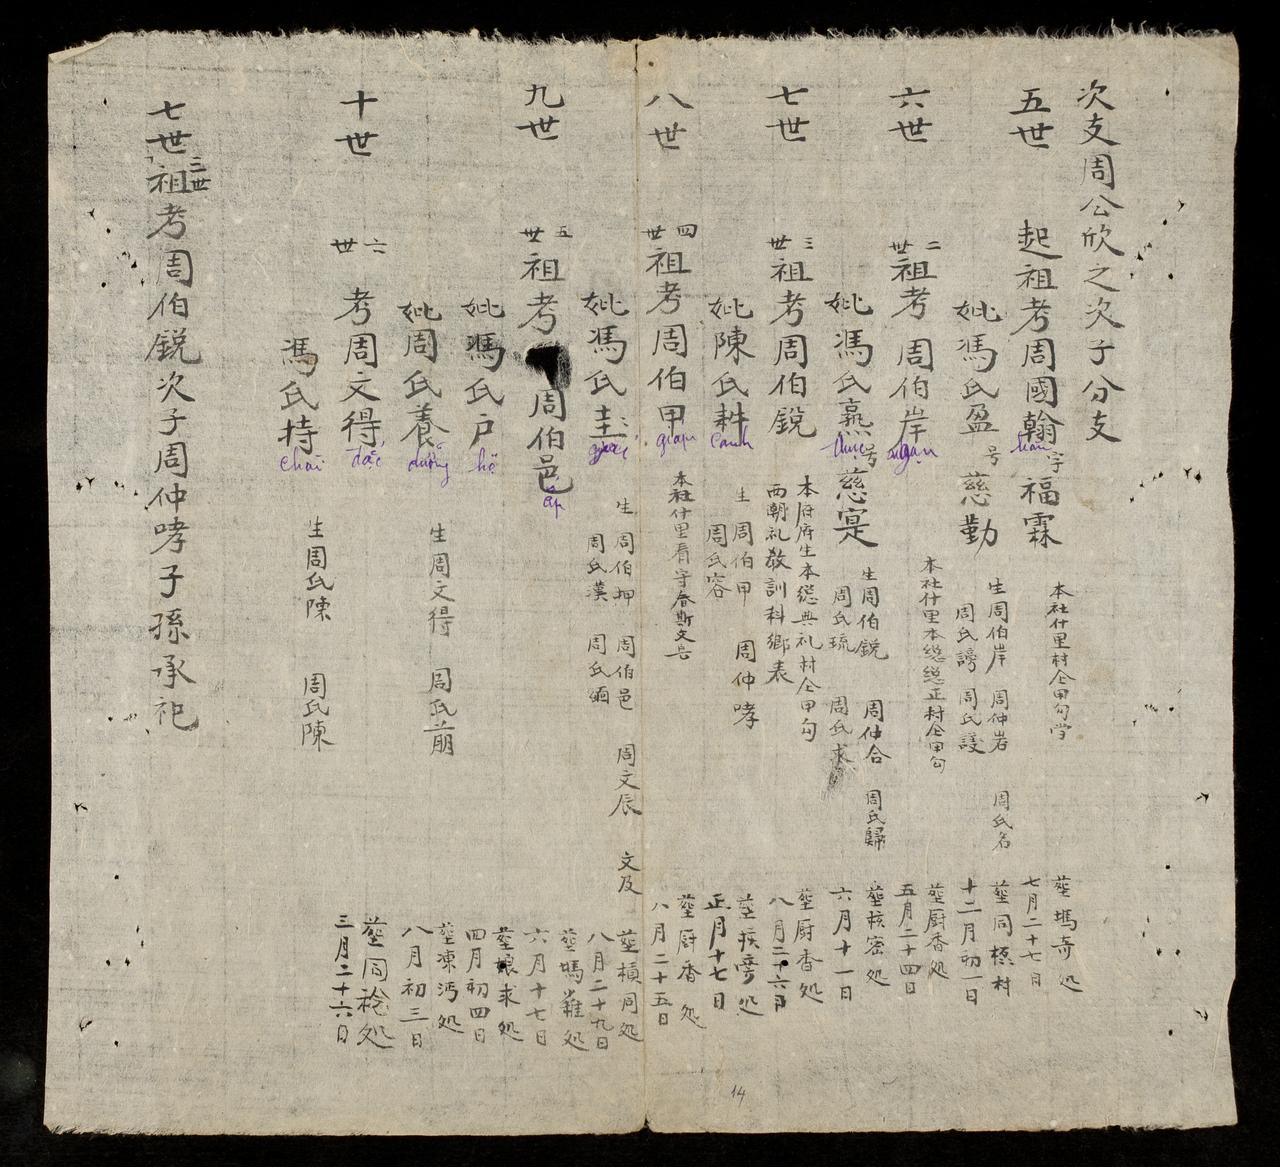 次支周公欣之次子分支
五世
起祖考周國翰字福霖
hàn
本社什里村仝甲勾学
葬塢奇処
七月二十七日
妣馮氏盈号慈勤
生周伯岸 周仲岩 周氏名
周氏謗 周氏護
葬同模村
十二月初一日
六世
二世
祖考周伯岸
ngạn
本社什里本總總正村仝甲勾
葬厨香処
五月二十四日
妣馮氏熹号慈寔
thục
生周伯鋭 周仲合 周氏歸
周氏琉 周氏求
葬核密処
六月十一日
七世
三世
祖考周伯鋭
本府府生本總典礼村仝甲勾
西朝礼教訓科鄉表
葬厨香処
八月二十六日
妣陳氏耕
canh
生周伯甲 周仲哮
周氏容
葬疾旁処
正月十七日
八世
四世
祖考周伯甲
giáp
本社什里看守春斯文長
葬厨香処
八月二十五日
妣馮氏圭
生周伯押 周伯邑 周文辰 文及
周氏漢 周氏緬
葬槓同処
八月二十九日
九世
五世
祖考周伯邑
ấp
葬塢難処
六月十七日
妣馮氏户
hộ
葬娘求処
四月初四日
妣周氏養
dưỡng
生周文得 周氏萠
葬凍沔処
八月初三日
十世
六世
考周文得
đắc
葬同裣処
三月二十六日
馮氏持
chai
生周氏陳 周氏陳
七世三世祖考周伯鋭次子周仲哮子孫承祀
14